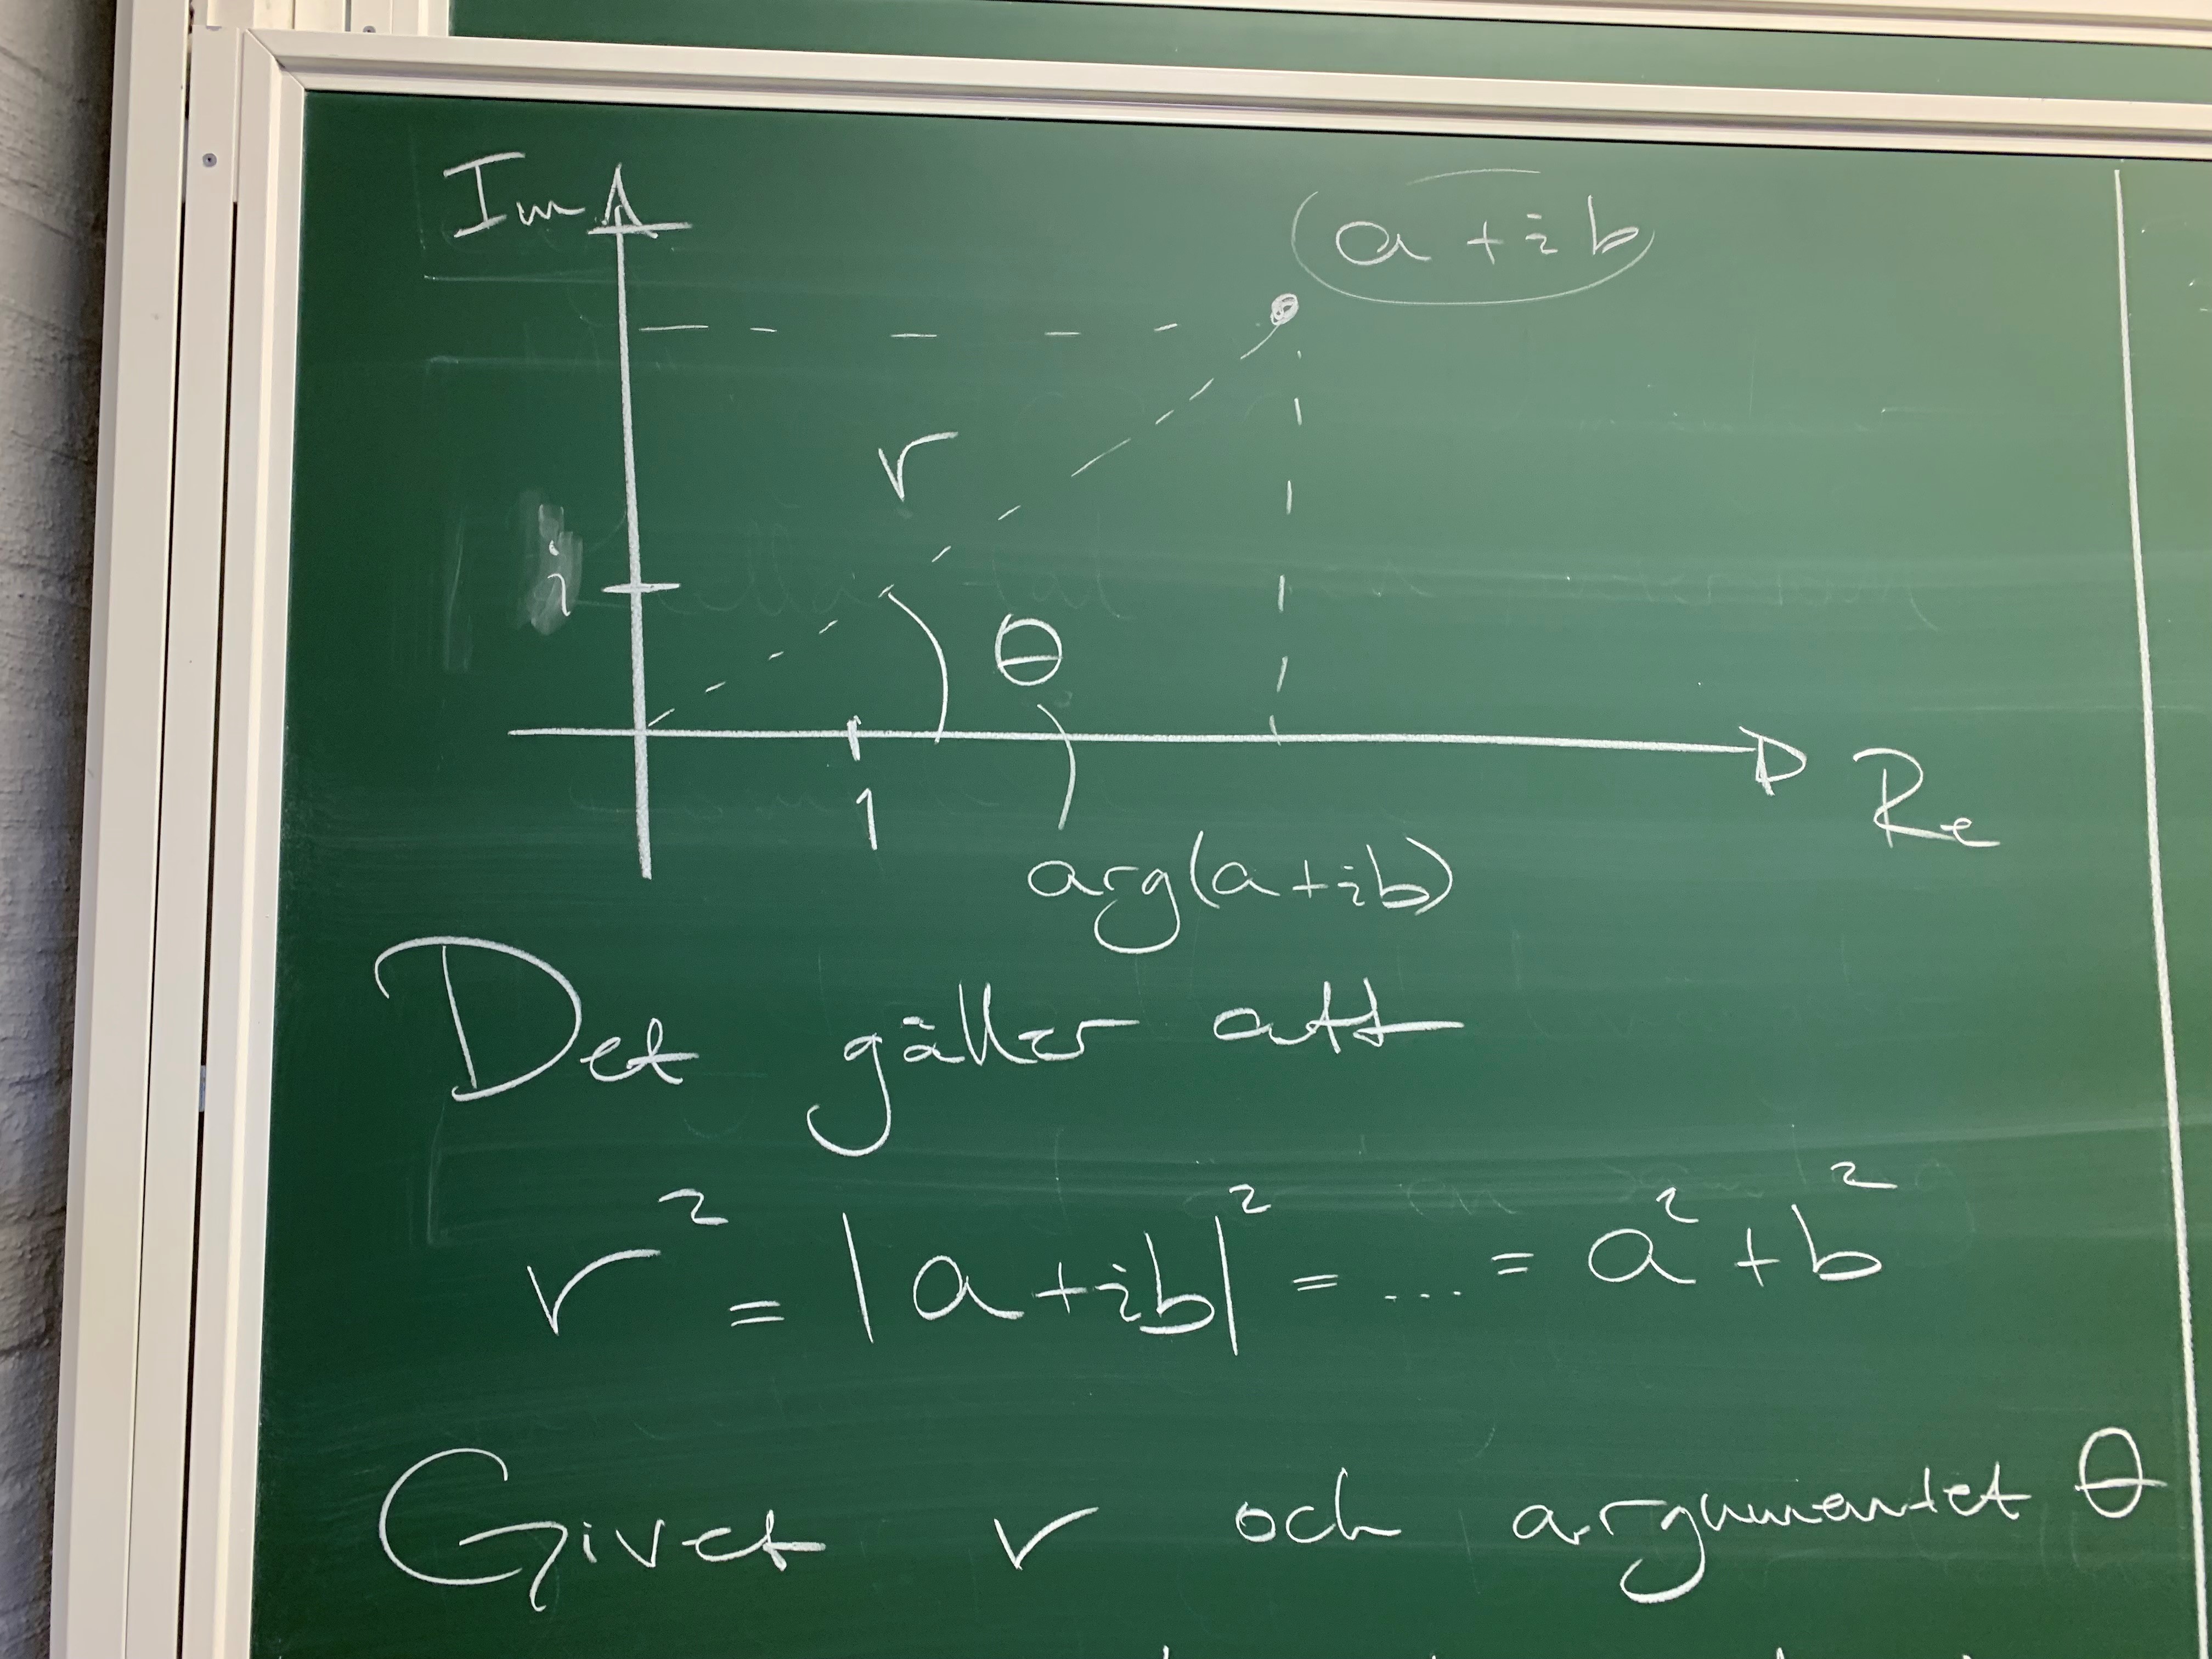 Im
a + ib
r
i
θ
1
Re
arg(a+ib)
Det gäller att
r² = |a+ib|² = .... = a² + b²
Givet r och argumentet θ